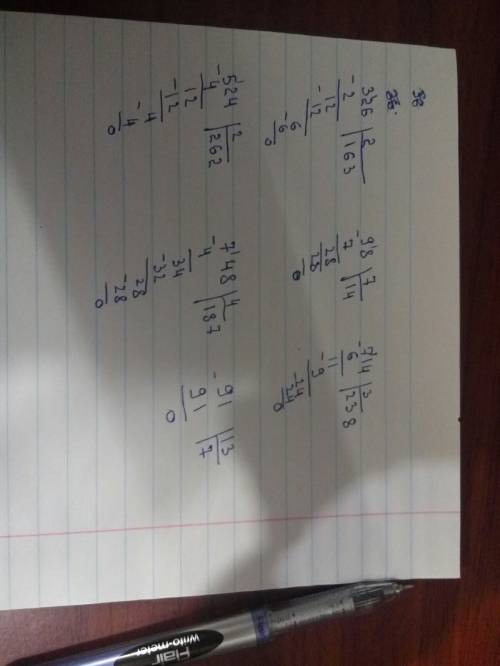 326 | 2
-2 | 163
12
-12
6
-6
0
98 | 7
-7 | 14
28
28
0
714 | 3
-6 | 238
11
-9
24
-24
0
524 | 2
-4 | 262
12
-12
4
-4
0
748 | 4
-4 | 187
34
-32
28
-28
0
91 | 13
-91 | 7
0
Flair
writo-meter